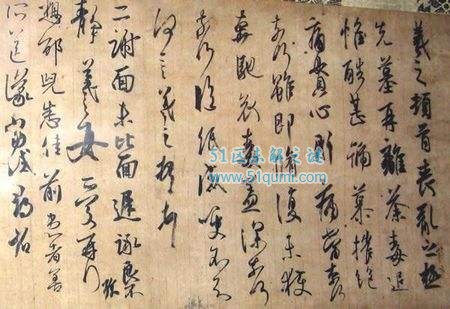 羲之頓首喪亂之極
先墓再離荼毒追
惟酷甚號慕摧絕
痛貫心肝痛當奈何
奈何雖即脩復未獲
奔馳哀毒益深奈何
奈何臨紙感哽不知
何言羲之頓首
二謝面未比面遲詠良不
靜羲之女愛再拜
想邵兒悉佳前患者善
所送議當試尋省
51区未解之谜
www.51qumi.com